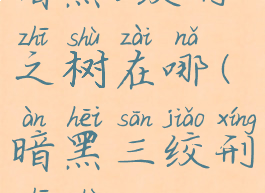 zhī shù zài nǎ
之树在哪(
àn hēi sān jiǎo xíng
暗黑三绞刑